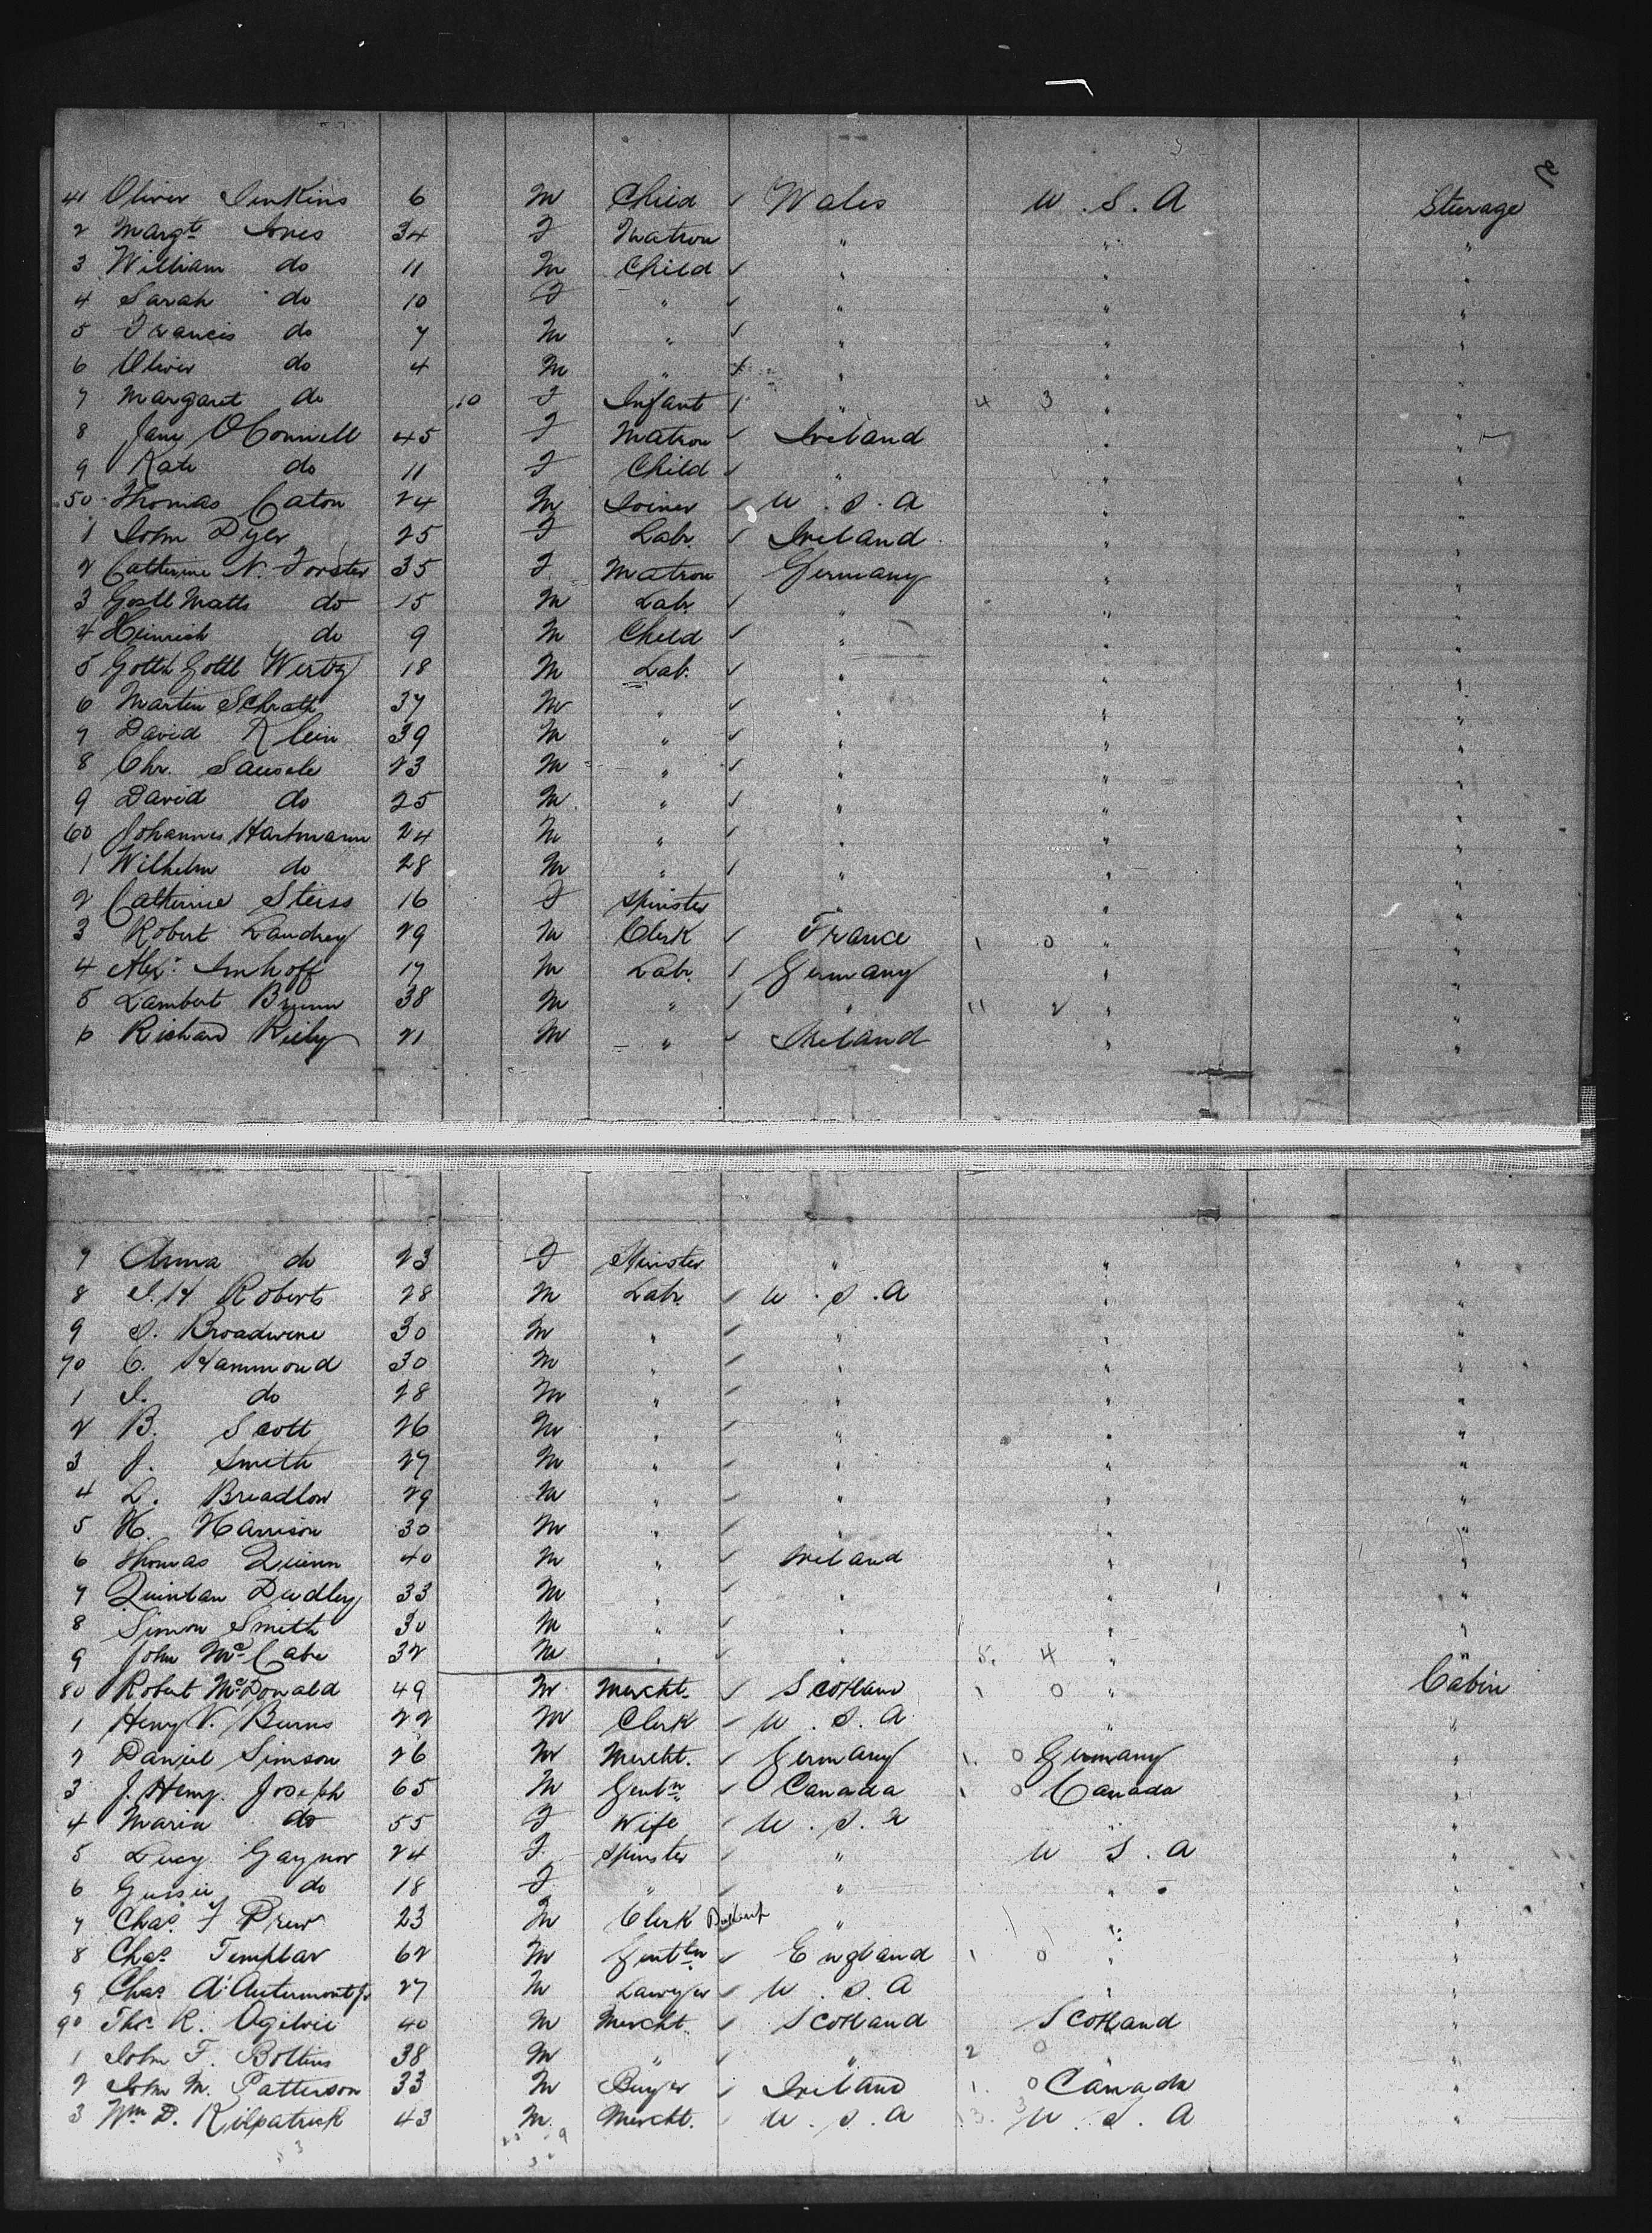 41 Oliver Jenkins 6 M Child ✓ Wales U. S. A Steerage
2 Margt Jones 34 F Matron " " "
3 William do 11 M Child ✓ " " "
4 Sarah do 10 F " ✓ " " "
5 Francis do 7 M " ✓ " " "
6 Oliver do 4 M " ✓ " " "
7 Margaret do 10 F Infant ✓ " 4 3 " "
8 Jane O'Connell 45 F Matron ✓ Ireland " "
9 Kate do 11 F Child ✓ " " "
50 Thomas Caton 24 M Joiner ✓ U. S. A " "
1 John Dyer 25 F Labr ✓ Ireland " "
2 Catherine N. Forster 35 F Matron Germany " "
3 Gottl Matts do 15 M Labr ✓ " " "
4 Heinrich do 9 M Child ✓ " " "
5 Gotth Gottl Wertz 18 M Lab. ✓ " " "
6 Martin Schrath 37 M " ✓ " " "
7 David Klein 39 M " ✓ " " "
8 Chr. Sausele 23 M " ✓ " " "
9 David do 25 M " ✓ " " "
60 Johannes Hartmann 24 M " ✓ " " "
1 Wilhelm do 28 M " ✓ " " "
2 Catherine Steiss 16 F Spinster " " "
3 Robert Landrey 29 M Clerk ✓ France 1 0 " "
4 Alexr Imhoff 17 M Labr ✓ Germany " "
5 Lambert Brunn 38 M " ✓ " 11 2 " "
6 Richard Riely 21 M " ✓ Ireland " "
7 Anna do 23 F Spinster " " "
8 J. H Roberts 28 M Labr ✓ U. S. A " "
9 S. Broadwine 30 M " ✓ " " "
70 C. Hammond 30 M " ✓ " " "
1 J. do 28 M " ✓ " " "
2 B. Scott 26 M " ✓ " " "
3 J. Smith 27 M " ✓ " " "
4 D. Breadlow 29 M " ✓ " " "
5 H. Harrison 30 M " ✓ " " "
6 Thomas Quinn 40 M " ✓ Ireland " "
7 Quinlan Dudley 33 M " ✓ " " "
8 Simon Smith 30 M " ✓ " " "
9 John McCabe 32 M " ✓ " 5. 4 " "
80 Robert McDonald 49 M Mercht ✓ Scotland 1 0 " Cabin
1 Henry V. Burns 22 M Clerk ✓ U. S. A " "
2 Daniel Simson 26 M Mercht. ✓ Germany 1. 0 Germany "
3 J. Henry Joseph 65 M Gentn ✓ Canada 1 0 Canada "
4 Maria do 55 F Wife ✓ U. S. A " "
5 Lucy Gaynor 24 F Spinster ✓ " U S. A "
6 Gussie do 18 F " ✓ " " "
7 Chas. F Drew 23 M Clerk " " "
8 Chas. Templar 62 M Gentln ✓ England 1 0 " "
9 Chas. A. Autermont Jr 27 M Lawyer ✓ U. S. A " "
90 Thos. R. Ogilvie 40 M Mercht. ✓ Scotland Scotland "
1 John F. Bollins 38 M " ✓ " 2 0 " "
2 John M. Patterson 33 M Buyer ✓ Ireland 1. 0 Canada "
3 Wm D. Kilpatrick 43 M. Mercht. ✓ U. S. A 13. 3 U. S. A "